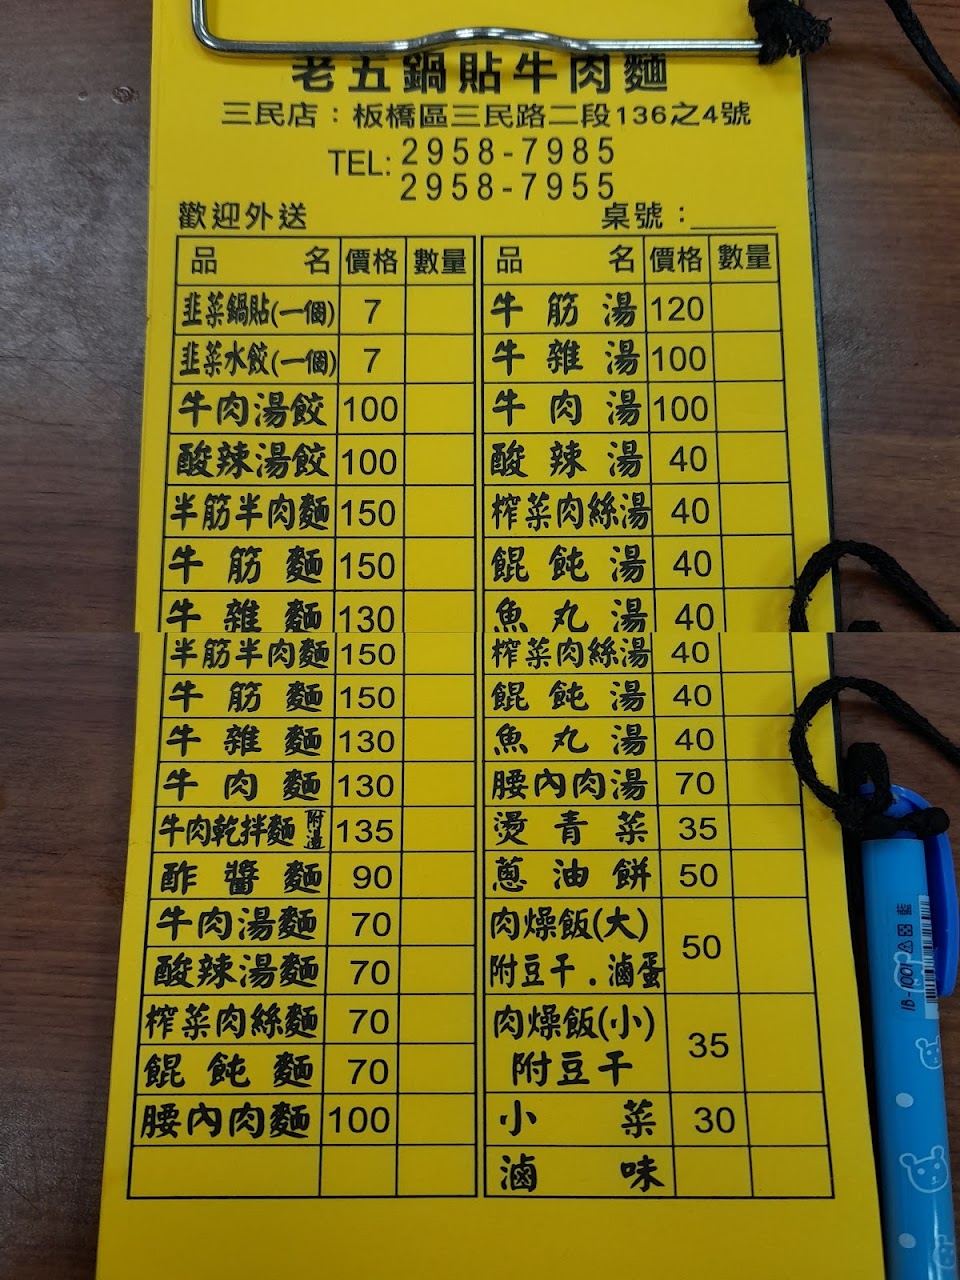 老五鍋貼牛肉麵
三民店：板橋區三民路二段136之4號
TEL: 2958-7985
2958-7955
歡迎外送 桌號：
品名 價格 數量 品名 價格 數量
韭菜鍋貼(一個) 7 牛筋湯 120
韭菜水餃(一個) 7 牛雜湯 100
牛肉湯餃 100 牛肉湯 100
酸辣湯餃 100 酸辣湯 40
半筋半肉麵 150 榨菜肉絲湯 40
牛筋麵 150 餛飩湯 40
牛雜麵 130 魚丸湯 40
半筋半肉麵 150 榨菜肉絲湯 40
牛筋麵 150 餛飩湯 40
牛雜麵 130 魚丸湯 40
牛肉麵 130 腰內肉湯 70
牛肉乾拌麵附湯 135 燙青菜 35
酢醬麵 90 蔥油餅 50
牛肉湯麵 70 肉燥飯(大) 50
酸辣湯麵 70 附豆干.滷蛋
榨菜肉絲麵 70 肉燥飯(小) 35
餛飩麵 70 附豆干
腰內肉麵 100 小菜 30
滷味
IB-1001 藍